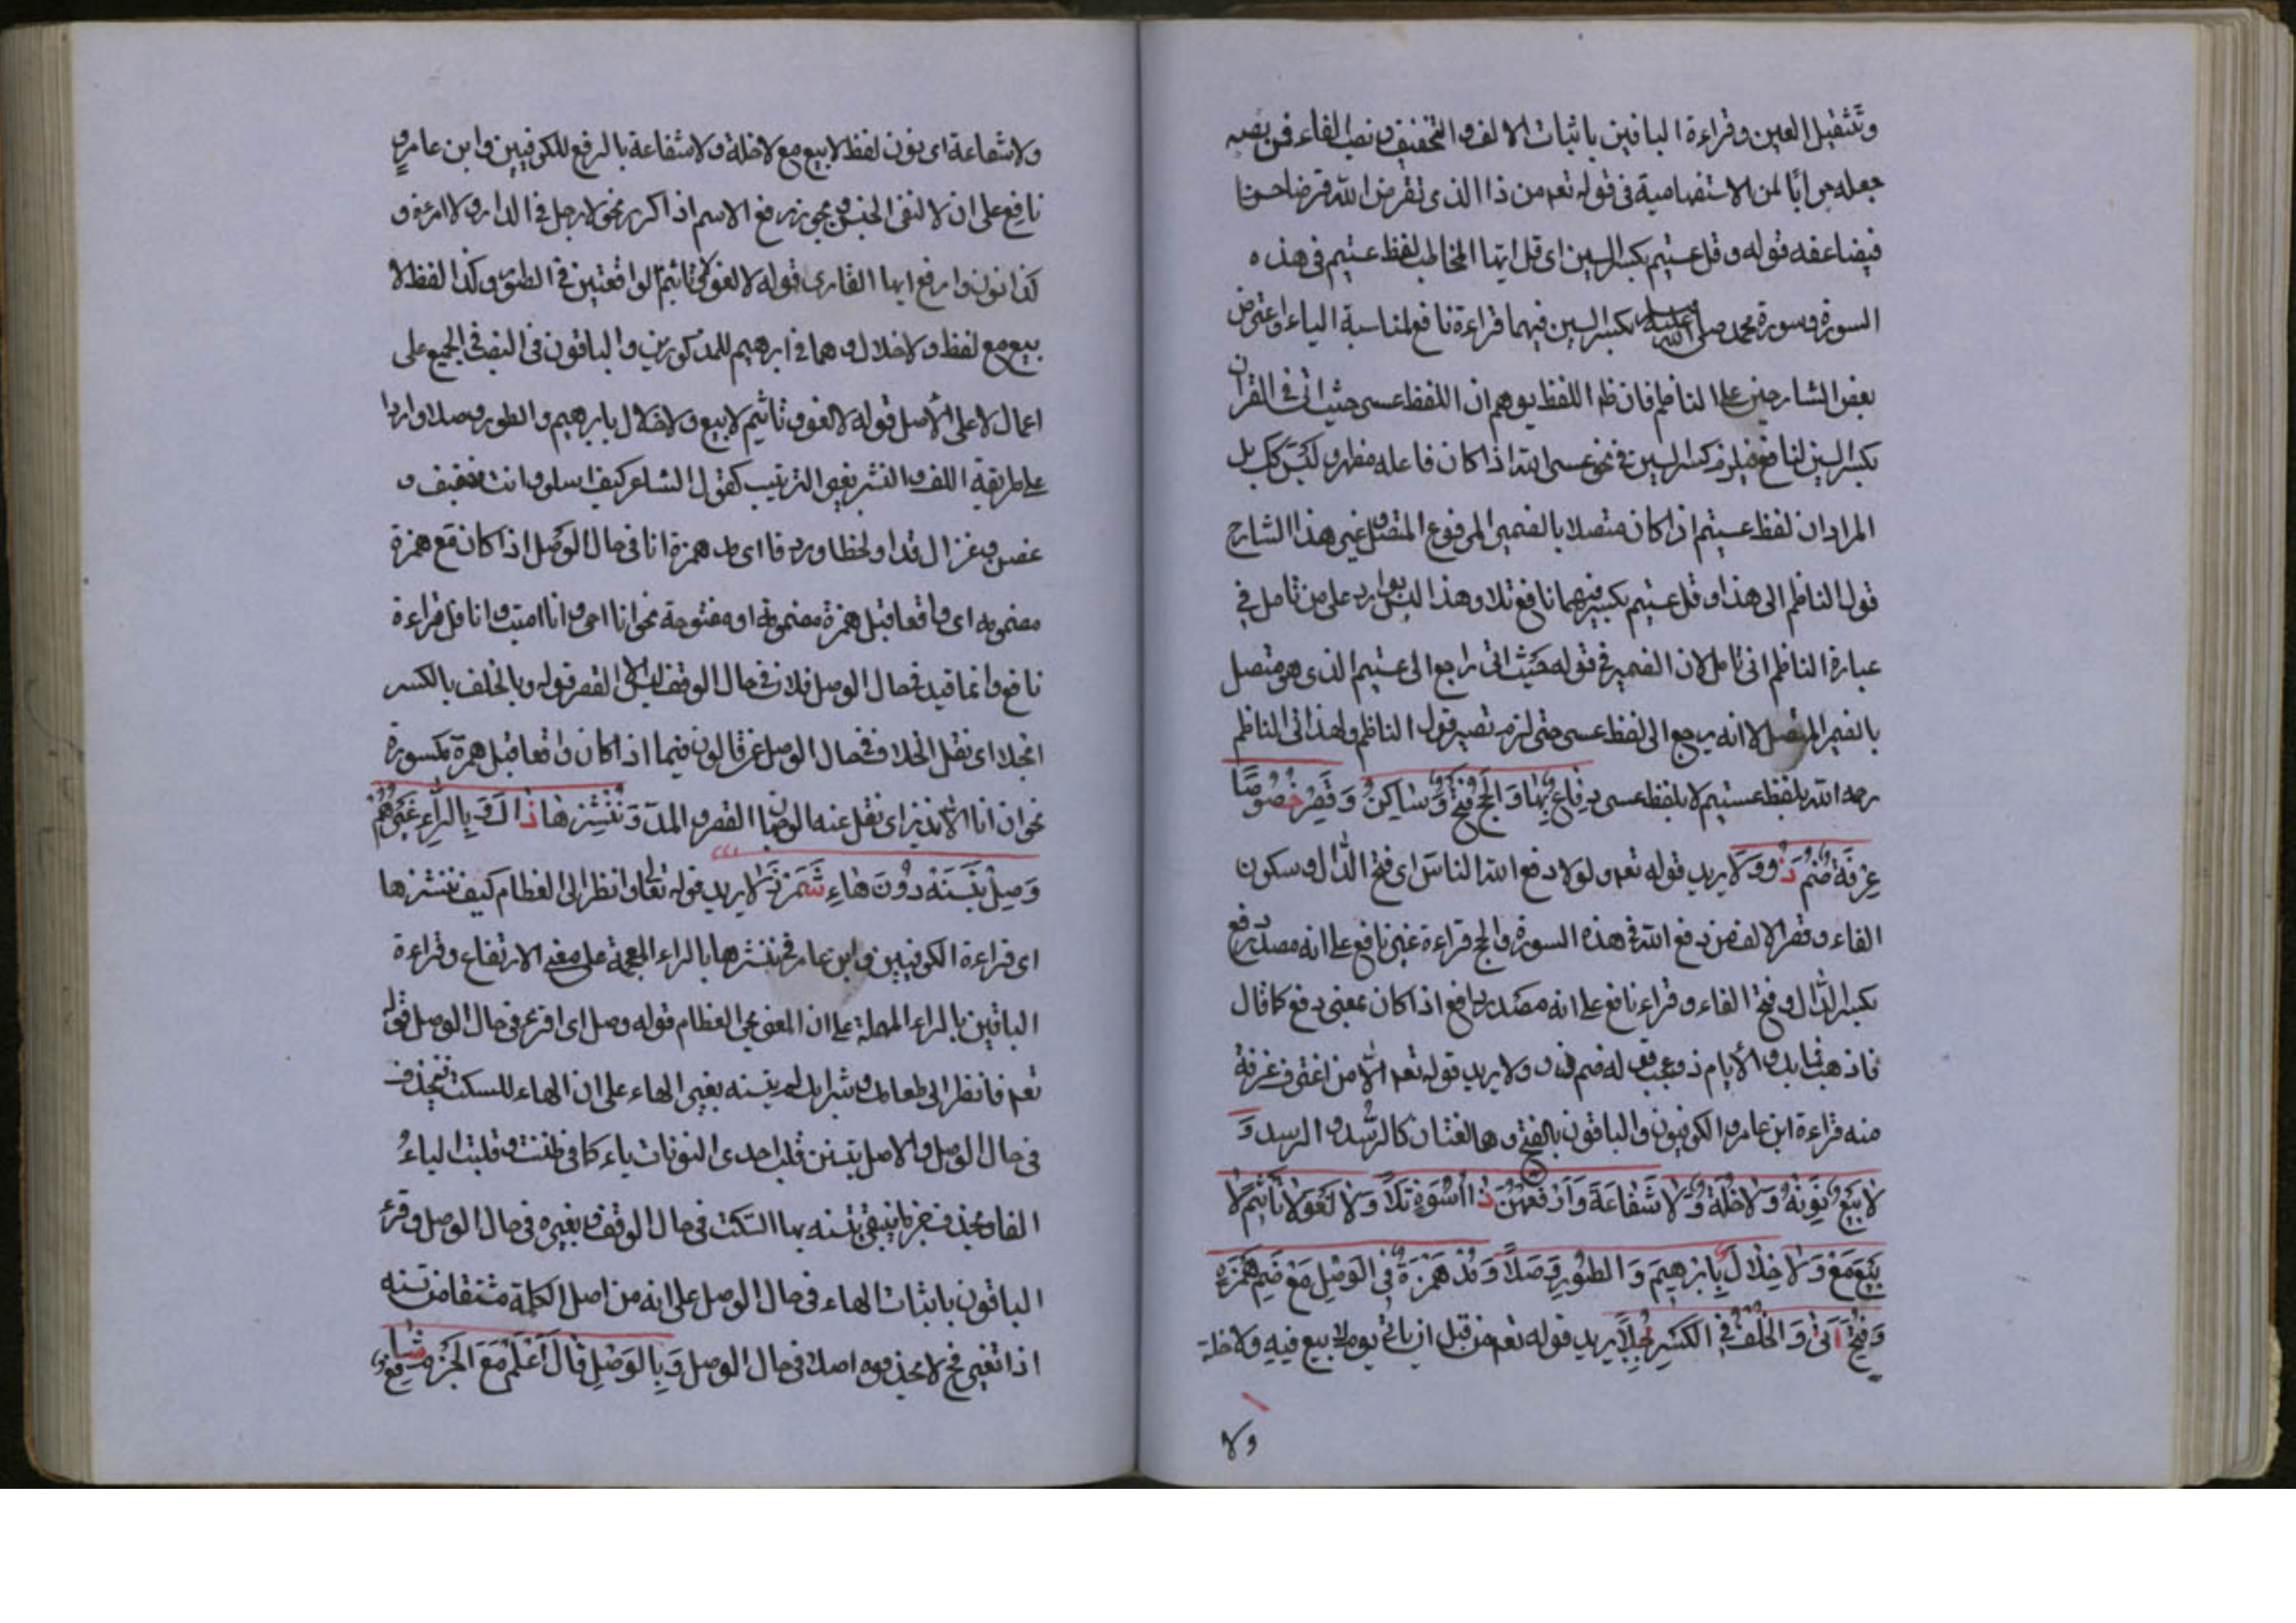 وتثقيل العين وقراءة الباقين باثبات الالف والتخفيف ونصب الفاء فمن نصبه
جعله جوابًا لمن الاستفهامية في قوله تعم من ذا الذي تقرض الله قرضا حسنا
فيضاعفه قوله وقل عسيتم بكسر السين اى قل ايها المخاطب لفظ عسيتم في هذه
السورة وسورة محمد صلى الله عليه بكسر السين فيهما قراءة نافع لمناسبة الياء واعترض
بعض الشارحين على الناظم فان ظ اللفظ يوهم ان اللفظ عسى حيث اتى في القران
بكسر السين لنافع كسر السين في نحو عسى الله اذا كان فاعله مظهرو ليس كك بل
المراد ان لفظ عسيتم اذا كان متصلا بالضمير المرفوع المتصل غير هذا الشارح
قول الناظم الى هذا وقل عسيتم بكسر فيهما نافع تلا وهذا ليس بوارد على من تامل في
عبارة الناظم ادنى تامل لان الضمير في قوله حيث اتى راجع الى عسيتم الذى هو متصل
بالضمير المتصل لا انه يرجع الى لفظ عسى حتى لزم تصير قول الناظم ولهذا اتى الناظم
رحه الله بلفظ عسيتم لا بلفظ عسى دِفَاعُ بِهَا وَالحَجِّ فَتْحٌ وَسَاكِنٌ وَقَصْرٌ خُصُوصًا
غُرْفَةً ضُمَّ ذُو وَلَا يريد قوله تعم ولولا دفع الله الناسَ اى فتح الدال وسكون
الفاء وقصر الالف من دفع الله في هذه السورة والحج قراءة غير نافع على انه مصدر دفع
بكسر الدال وفتح الفاء وقراء نافع على انه مصدر دافع اذا كان بمعنى دفع كما قال
قوله ضم ذو ولا يريد قوله تعم الا من اغترف غرفة
منه قراءة ابن عامر والكوفيون والباقون بالفتح وهما لغتان كالرُّشد والرشد وَ
لَا بَيْعَ نَوِّنْهُ وَلَا خُلَّةٌ وَلَا شَفَاعَةَ وَارْفَعْهُنَّ ذَا اُسْوَةٍ تَلَا وَلَا لَغْوَ لَا تَأْثِيْمَ لَا
بَيْعَ مَعْ وَلَا خِلَالَ بِابْرهِيمَ وَالطُّورِ وُصِّلَا وَمَدُّ هَمْزَةٍ فِى الوَصْلِ مَعْ ضَمِّ هَمْزَةٍ
وَفَتْحٍ اَتَى وَالخُلْفُ فِى الكَسْرِ بُجِّلَا يريد قوله تعم من قبل ان يأتى يوم لا بيع فيه ولا خلة
ولا
ولا شفاعة اى نون لفظ لا بيع مع لا خلة ولا شفاعة بالرفع للكوفيين وابن عامر و
نافع على ان لا لنفى الجنس ويجوز رفع الاسم اذا كرر نحو لا رجل في الدار ولا امرءة و
كذا نون وارفع ايها القارى قوله لا لغو لا تاثيم الواقعتين في الطور وكذا لفظ لا
بيع مع لفظ ولا خلال وهما في ابرهيم للمذكورين والباقون في النصب في الجميع على
اعمال لا على الأصل قوله لا لغو ولا تاثيم لا بيع ولا خلال بابرهيم والطور وصلا وارد
على طريقة اللف والنشر بغير الترتيب كقول الشاعر كيف اسلو وانت حقف و
غصن وغزال قدا ولحظا وردفا اى مد همزة انا في حال الوصل اذا كان مع همزة
مضمومه اى واقعا قبل همزة مضمومة او مفتوحة نحو انا احي وانا اميت وانا قل قراءة
نافع وانما قيد في حال الوصل فلان في حال الوقف ليس الا القصر قوله وبالخلف بالكسر
انجلا اى نقل الخلاف في حال الوصل عن قالون فيما اذا كان واقعا قبل همزة مكسورة
نحو ان انا الا نذير اى نقل عنه الوجهان القصر والمدّ وَنُنْشِزُهَا ذَاكَ وَبِالرَّاءِ غَيْرُهُمْ
وَصِلْ يَتَسَنَّهْ دُوْنَ هَاءٍ شَمَرْدَلَا يريد قوله تعالى وانظر الى العظام كيف ننشزها
اى قراءة الكوفيين وابن عامر ننشزها بالزاء المعجمة على معنى الارتفاع وقراءة
الباقين بالراء المهملة على ان المعنى نحى العظام قوله وصل اى اقرء في حال الوصل قوله
تعم فانظر الى طعامك وشرابك لم يتسنه بغير الهاء على ان الهاء للسكت فيحذف
في حال الوصل والاصل يتسنن قلبت احدى النونات ياء كما في ظننت وقلبت الياءُ
الفا ويحذف جزما يبقى يتسنه بها السكت في حال الوقف وبغيره في حال الوصل وقرء
الباقون باثبات الهاء في حال الوصل على انه من اصل الكلمة مشتقا من تسنه
اذا تغير فح لا يحذفوه اصلا في حال الوصل وَبِالوَصْلِ قَالَ اعْلَمْ مَعَ الجَزْمِ شَافِعٌ